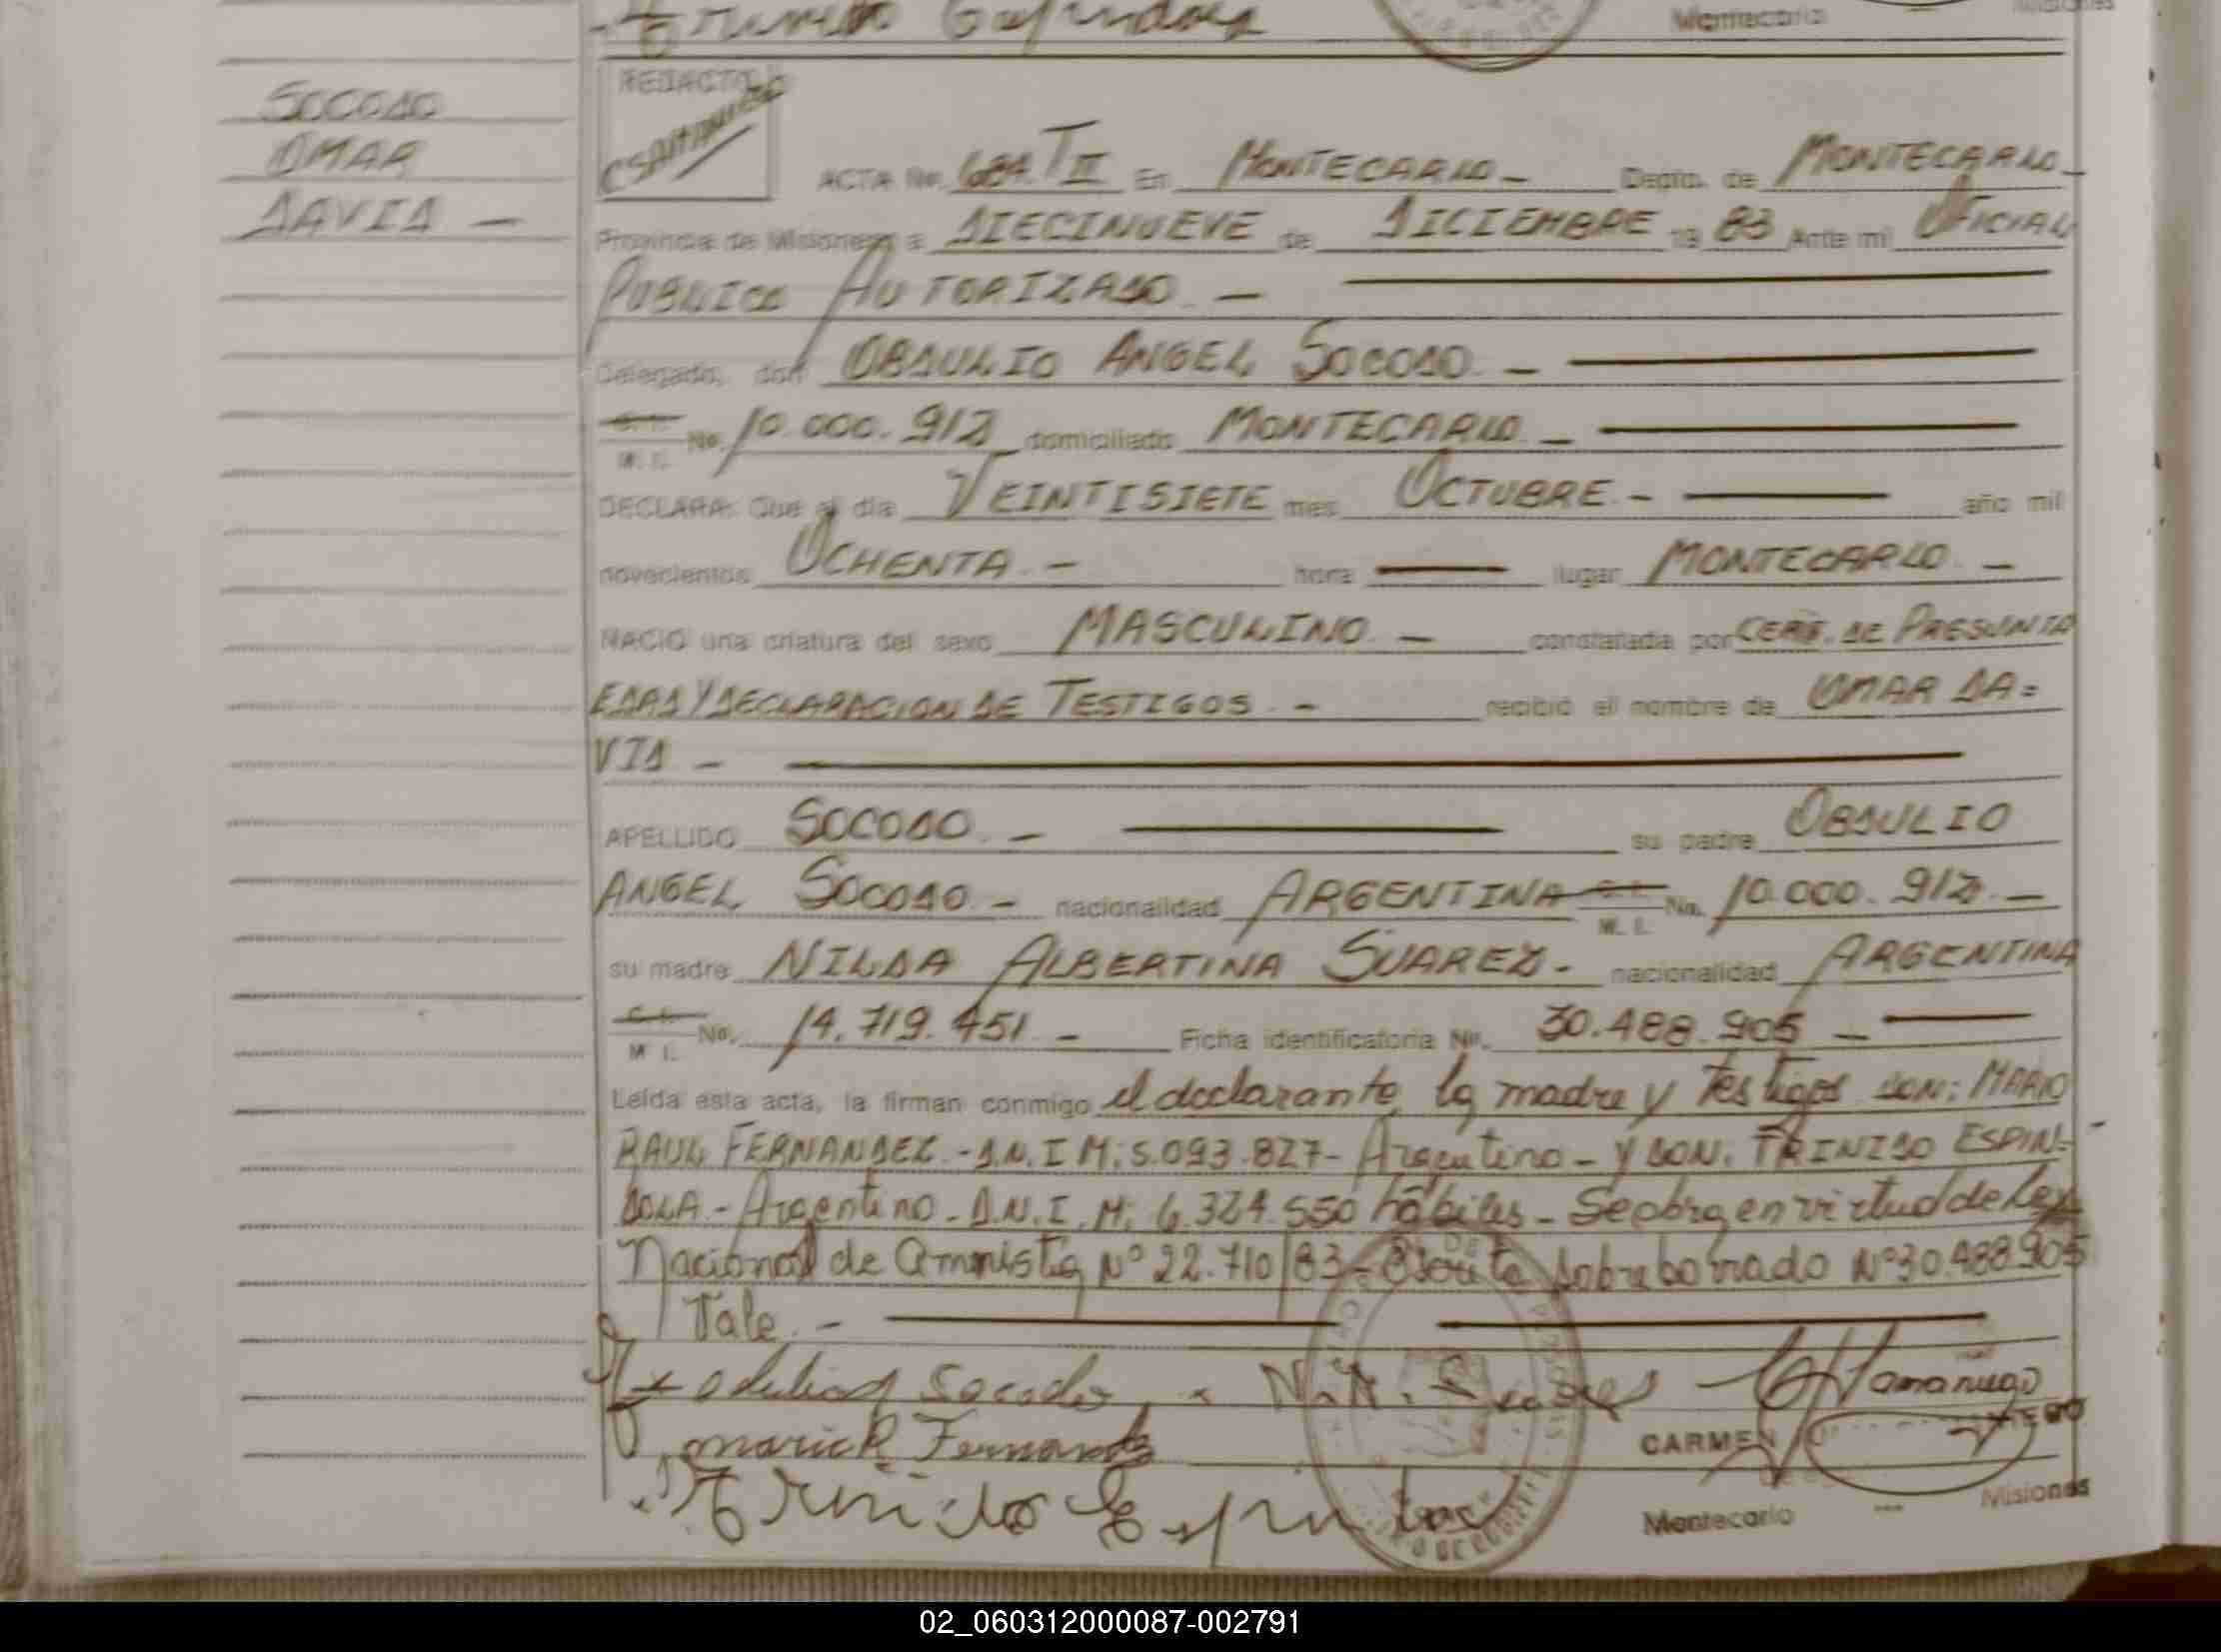 Montecarlo Misiones
SOCODO
OMAR
DAVID -
REDACTO
ACTA No. 684 T II En MONTECARLO - Depto. de MONTECARLO -
Provincia de Misiones a DIECINUEVE de DICIEMBRE 19 83 Ante mí OFICIAL
PUBLICO AUTORIZADO -
Delegado, don OBDULIO ANGEL SOCODO -
C. I. M. I. No. 10.000.912 domiciliado MONTECARLO -
DECLARA: Que el día VEINTISIETE mes OCTUBRE - año mil
novecientos OCHENTA - hora lugar MONTECARLO -
NACIO una criatura del sexo MASCULINO - constatada por CERT. DE PRESUNTA
EDAD Y DECLARACION DE TESTIGOS - recibió el nombre de OMAR DA=
VID -
APELLIDO SOCODO - su padre OBDULIO
ANGEL SOCODO - nacionalidad ARGENTINA C. I. M. I. No. 10.000.912 -
su madre NILDA ALBERTINA SUAREZ - nacionalidad ARGENTINA
C. I. M. I. No. 14.719.451 - Ficha identificatoria No. 30.488.905 -
Leída esta acta, la firman conmigo el declarante, la madre y Testigos DON: MARIO
RAUL FERNANDEZ - D.N.I M: 5.093.827 - Argentino - Y DON. TRINIDO ESPIN=
DOLA - Argentino - D.N.I. M: 6.324.550 hábiles - Se obra en virtud de Ley
Nacional de Amnistia Nº 22.710/83 - Escrito sobreborrado Nº 30.488.905
Vale. -
Socodo N. A. Suares
Fernandez CARMEN
Montecarlo --- Misiones
02_060312000087-002791